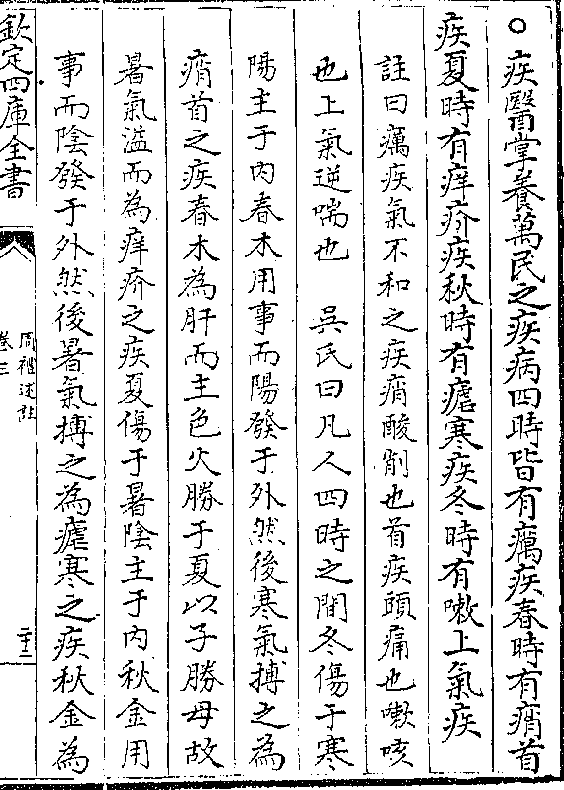 ○疾醫掌養萬民之疾病四時皆有癘疾春時有痟首
疾夏時有痒疥疾秋時有瘧寒疾冬時有嗽上氣疾
註曰癘疾氣不和之疾痟酸削也首疾頭痛也嗽咳
也上氣逆喘也　吳氏曰凡人四時之間冬傷于寒
陽主于内春木用事而陽發于外然後寒氣搏之為
痟首之疾春木為肝而主色火勝于夏以子勝母故
暑氣溢而為痒疥之疾夏傷于暑陰主于内秋金用
事而陰發于外然後暑氣搏之為瘧寒之疾秋金為
欽定四庫全書
周禮述註
卷三
二十三